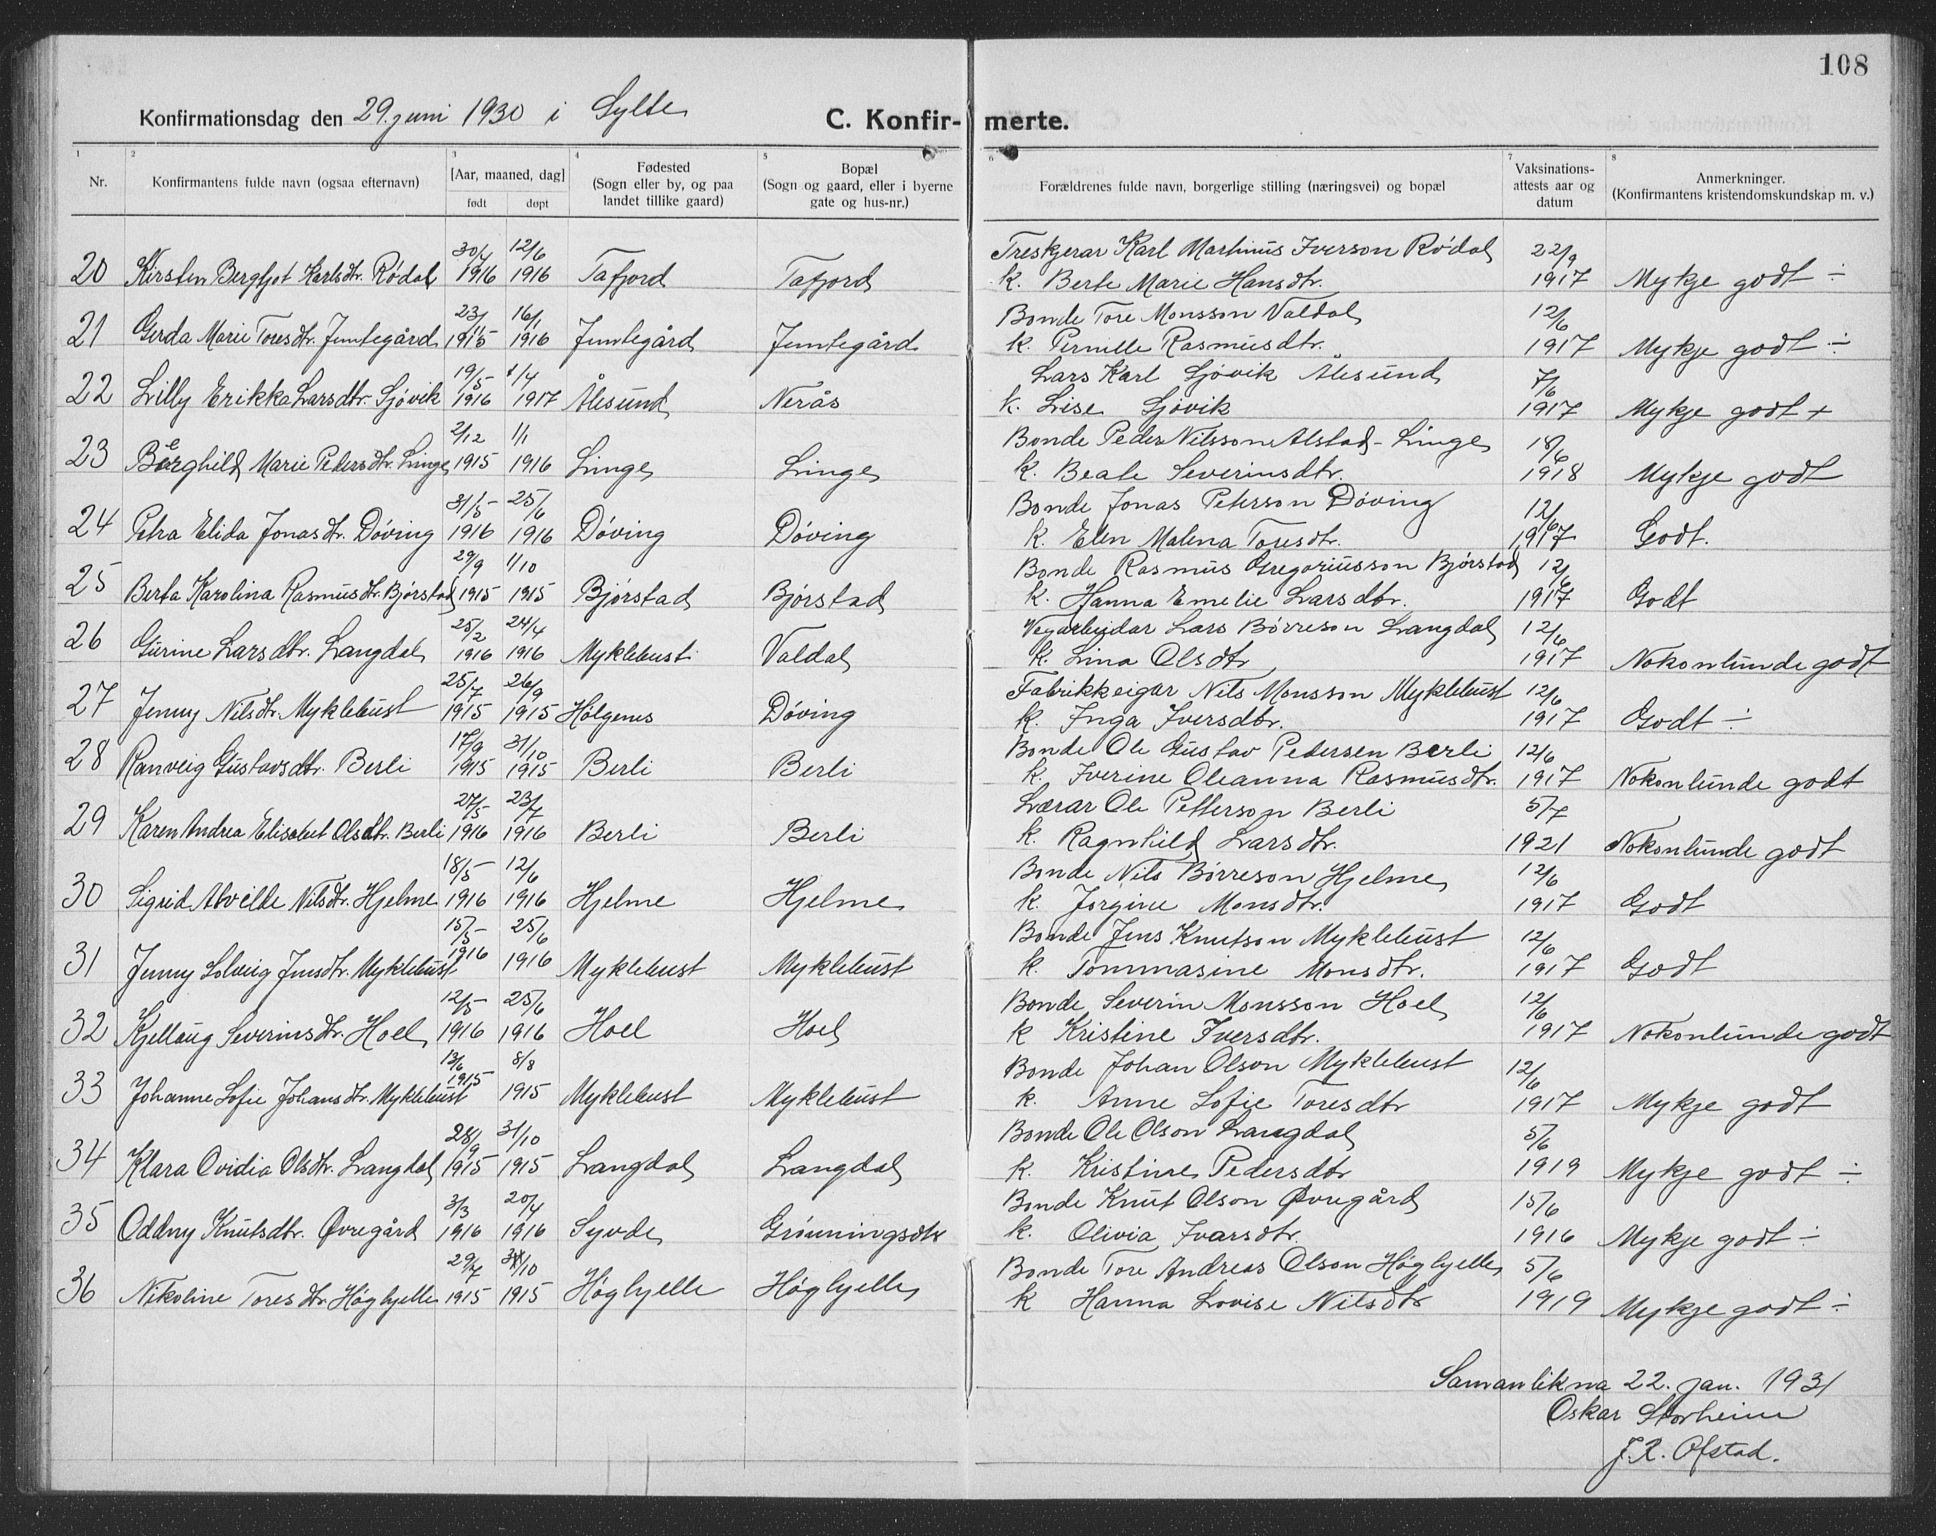 108
Konfirmationsdag den 29. juni 1930 i Sylte C. Konfirmerte.
1 2 3 4 5 6 7 8
Nr. Konfirmantens fulde navn (ogsaa efternavn) [Aar, maaned, dag] født døpt Fødested (Sogn eller by, og paa landet tillike gaard) Bopæl (Sogn og gaard, eller i byerne gate og hus-nr.) Forældrenes fulde navn, borgerlige stilling (næringsvei) og bopæl Vaksinationsattests aar og datum Anmerkninger. (Konfirmantens kristendomskundskap m. v.)
30/4 12/6 Treskjerar Karl Martinus Iverson Rødal 22/9
20 Kirsten Bergljot Karlsdtr. Rødal 1916 1916 Tafjord Tafjord k. Berte Marie Hansdtr. 1917 Mykje godt ÷
23/11 16/1 Bonde Tore Monsson Valdal 12/6
21 Gerda Marie Toresdtr. Jemtegård 1915 1916 Jemtegård Jemtegård k. Pernille Rasmusdtr. 1917 Mykje godt ÷
19/5 1/4 Lars Karl Sjøvik Ålesund 7/6
22 Lilly Erikka Larsdtr. Sjøvik 1916 1917 Ålesund Nerås k. Lise Sjøvik 1917 Mykje godt +
2/12 1/1 Bonde Peder Nilsson Alstad - Linge 18/6
23 Berghild Marie Pedersdtr. Linge 1915 1916 Linge Linge k. Beate Severinsdtr. 1918 Mykje godt
31/5 25/6 Bonde Jonas Peterson Døving 12/6
24 Petra Elida Jonasdtr. Døving 1916 1916 Døving Døving k. Elen Malena Toresdtr. 1917 Godt.
29/9 1/10 Bonde Rasmus Gregoriusson Bjørstad 12/6
25 Berta Karolina Rasmusdtr. Bjørstad 1915 1915 Bjørstad Bjørstad k. Hanna Emelie Larsdtr. 1917 Godt
25/2 24/4 Vegarbeidar Lars Børreson Langdal 12/6
26 Gurine Larsdtr. Langdal 1916 1916 Myklebust Valdal k. Lina Olsdtr 1917 Nokonlunde godt
25/7 26/9 Fabrikkeigar Nils Monsson Myklebust 12/6
27 Jenny Nilsdtr. Myklebust 1915 1915 Hølgenes Døving k. Inga Iversdtr. 1917 Godt ÷
17/9 31/10 Bonde Ole Gustav Pedersen Berli 12/6
28 Ranveig Gustavsdtr. Berli 1915 1915 Berli Berli k. Iverine Oleanna Rasmusdtr. 1917 Nokonlunde godt
27/5 23/7 Lærar Ole Petterson Berli 5/7
29 Karen Andrea Elisabet Olsdtr. Berli 1916 1916 Berli Berli k. Ragnhild Larsdtr. 1921 Nokonlunde godt
18/5 12/6 Bonde Nils Børreson Hjelme 12/6
30 Sigrid Alvelde Nilsdtr. Hjelme 1916 1916 Hjelme Hjelme k. Jørgine Monsdtr. 1917 Godt
15/5 25/6 Bonde Jens Knutson Myklebust 12/6
31 Jenny Solveig Jensdtr. Myklebust 1916 1916 Myklebust Myklebust k. Tommasine Monsdtr. 1917 Godt
12/5 25/6 Bonde Severin Monsson Hoel 12/6
32 Kjellaug Severinsdtr. Hoel 1916 1916 Hoel Hoel k Kristine Iversdtr. 1917 Nokonlunde godt
13/6 8/8 Bonde Johan Olson Myklebust 12/6
33 Johanne Sofie Johansdtr. Myklebust 1915 1915 Myklebust Myklebust k. Anne Sofie Toresdtr 1917 Mykje godt
28/9 31/10 Bonde Ole Olson Langdal 5/6
34 Klara Ovidia Olsdtr. Langdal 1915 1915 Langdal Langdal k. Kristine Pedersdtr 1919 Mykje godt ÷
3/3 20/4 Bonde Knut Olson Øvregård 15/6
35 Oddny Knutsdtr. Øvregård 1916 1916 Syvde Grønningsdtr k. Olivia Ivarsdtr. 1916 Mykje godt ÷
29/7 31/10 Bonde Tore Andreas Olson Høghjelle 5/6
36 Nikoline Toresdtr. Høghjelle 1915 1915 Høghjelle Høghjelle k Hanna Lovise Nilsdtr 1919 Mykje godt ÷
Samanlikna 22. jan. 1931
Oskar Storheim
J. R. Ofstad.